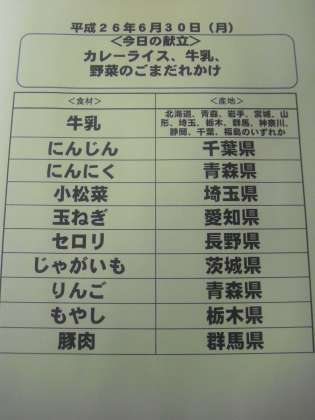 平成26年6月30日（月）
＜今日の献立＞
カレーライス、牛乳、
野菜のごまだれかけ
＜食材＞ ＜産地＞
牛乳 北海道、青森、岩手、宮城、山
形、埼玉、栃木、群馬、神奈川、
静岡、千葉、福島のいずれか
にんじん 千葉県
にんにく 青森県
小松菜 埼玉県
玉ねぎ 愛知県
セロリ 長野県
じゃがいも 茨城県
りんご 青森県
もやし 栃木県
豚肉 群馬県